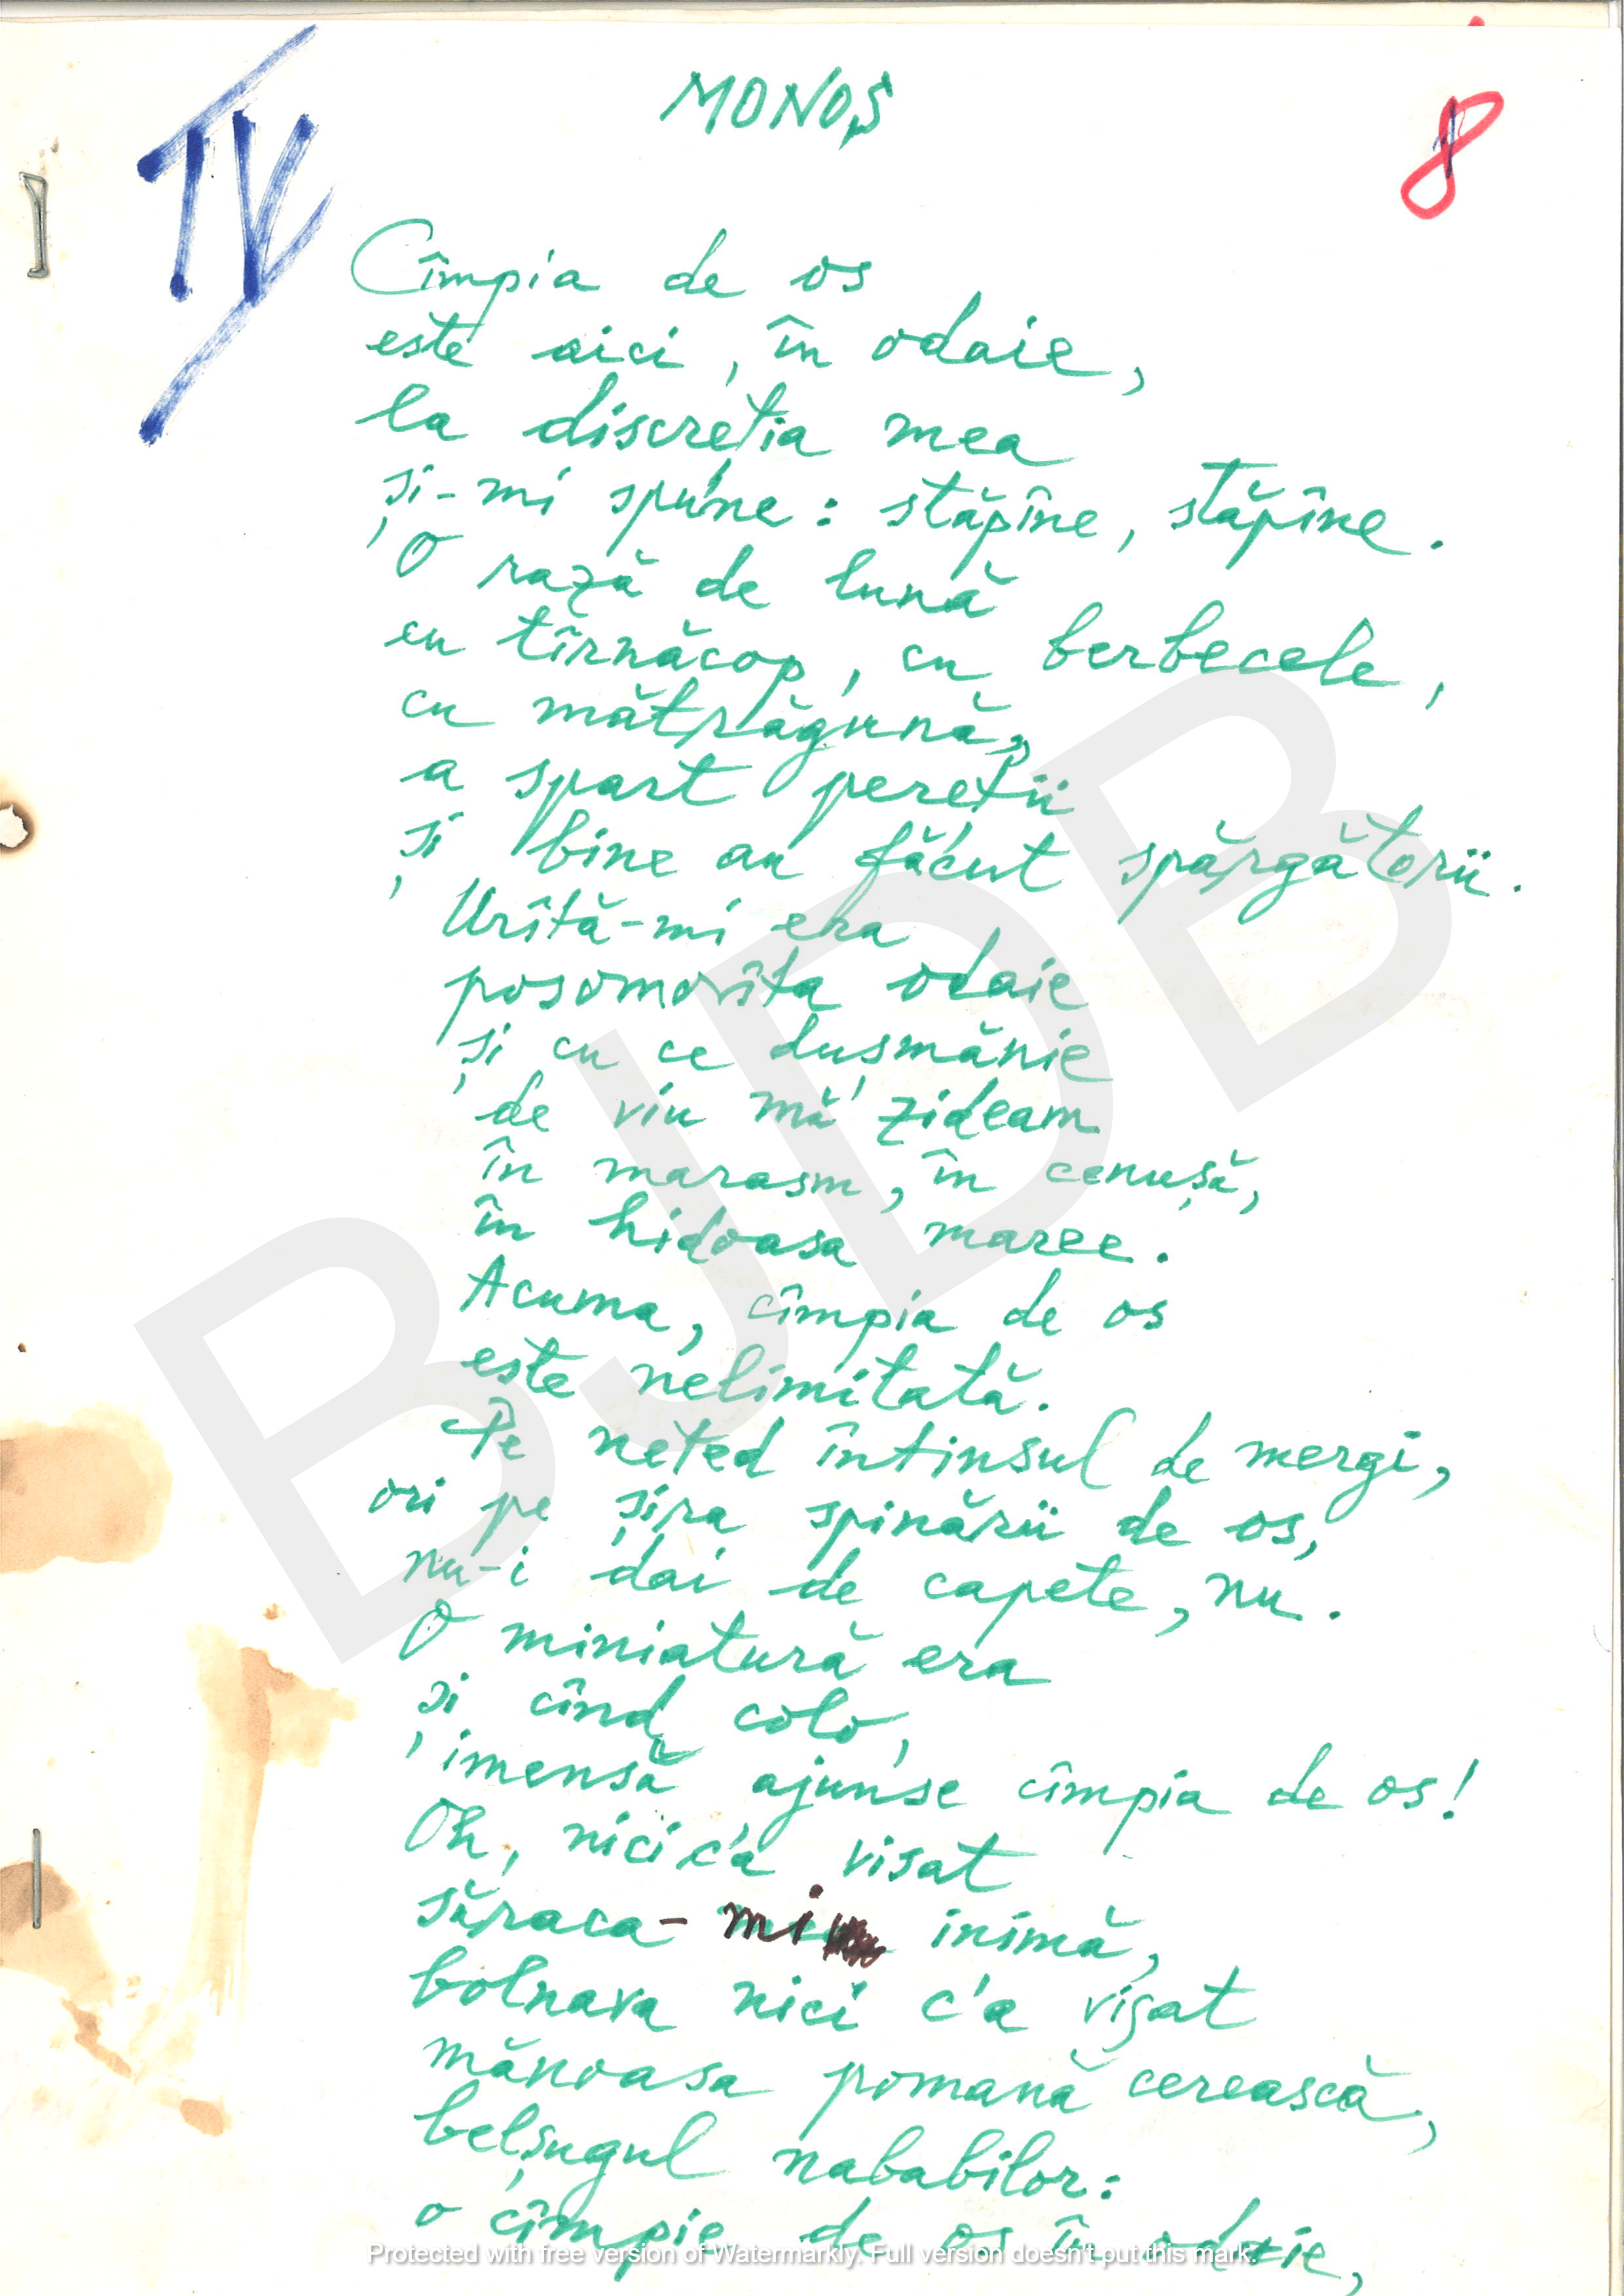 IV
MONOȘ
8
Cîmpia de os
este aici, în odaie,
la discreția mea
și-mi spune: stăpîne, stăpîne.
O rază de lună
cu tîrnăcop, cu berbecele,
cu mătrăgună,
a spart pereții
și bine au făcut spărgătorii.
Urîtă-mi era
posomorîta odaie
și cu ce dușmănie
de viu mă zideam
în marasm, în cenușă,
în hidoasa maree.
Acuma, cîmpia de os
este nelimitată.
Pe neted întinsul de mergi,
ori pe șira spinării de os,
nu-i dai de capete, nu.
O miniatură era
și cînd colo,
imensă ajunse cîmpia de os!
Oh, nici c'a visat
săraca-mi inimă,
bolnava nici c'a visat
mănoasa pomană cerească,
belșugul nababilor:
o cîmpie de os în odaie,
BJDB
Protected with free version of Watermarkly. Full version doesn't put this mark.